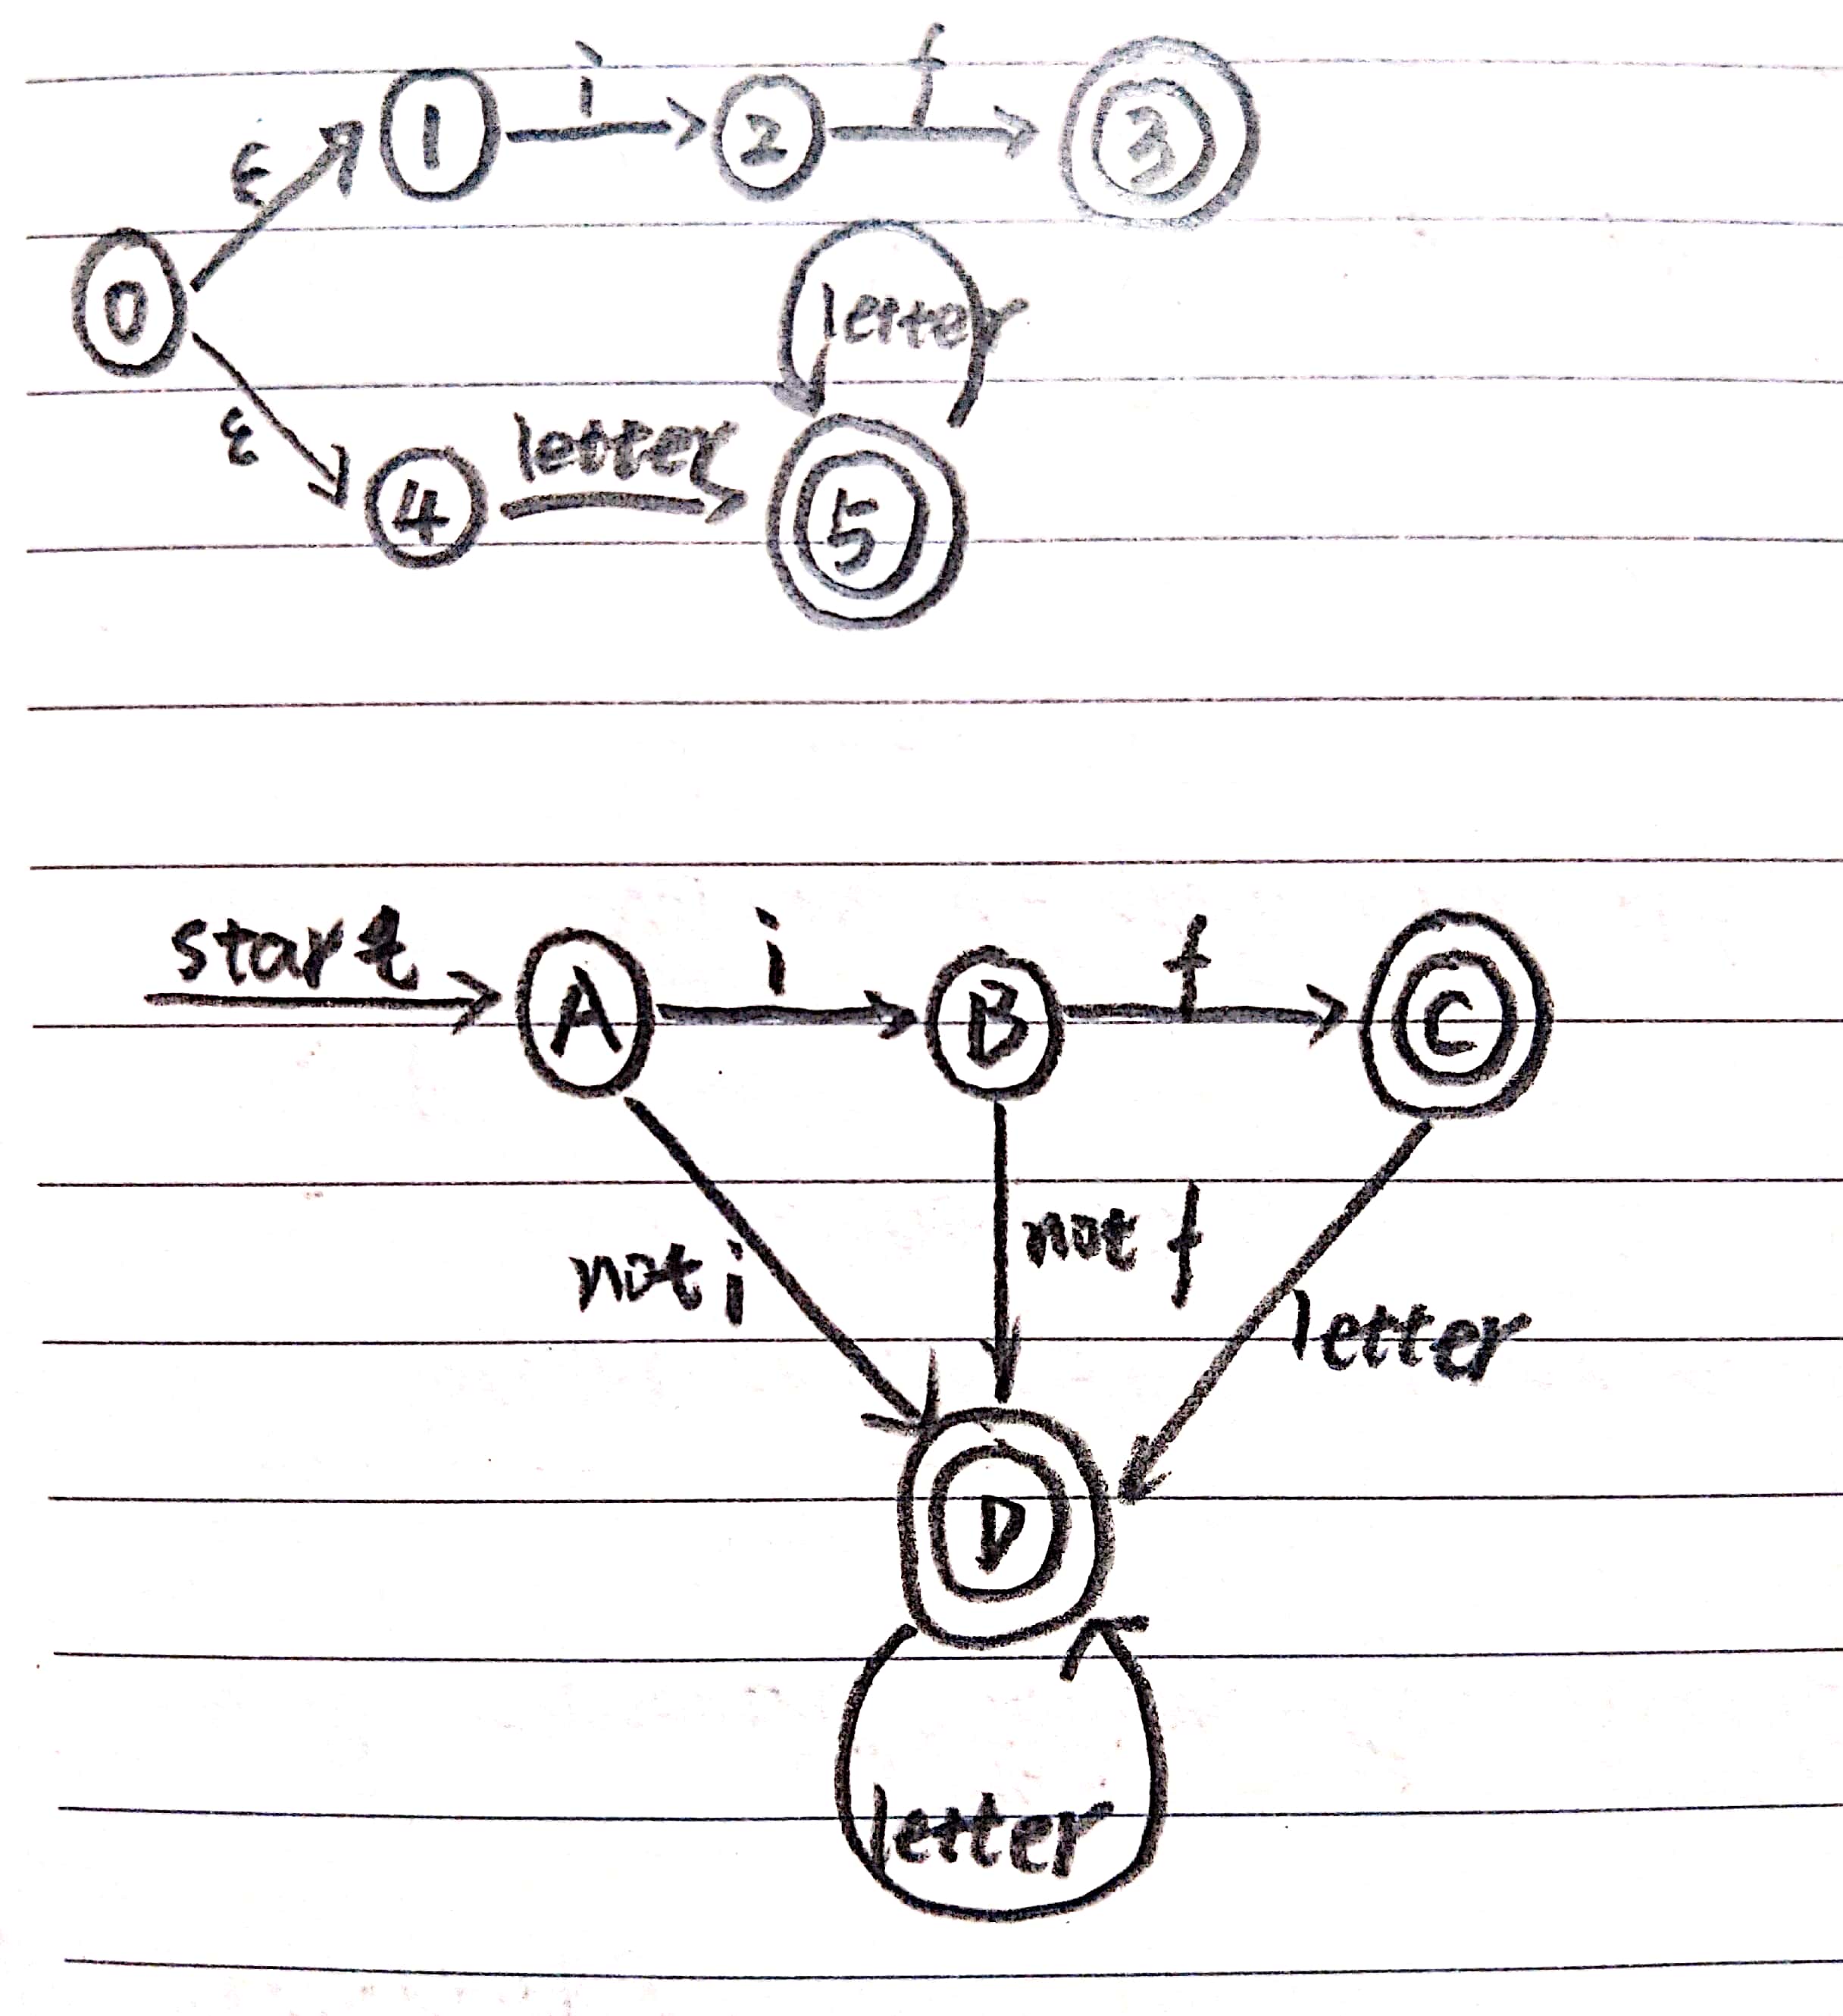 i f
ε 1 2 3
0 letter
ε 4 letter 5
start A i B f C
not i not f letter
D
letter